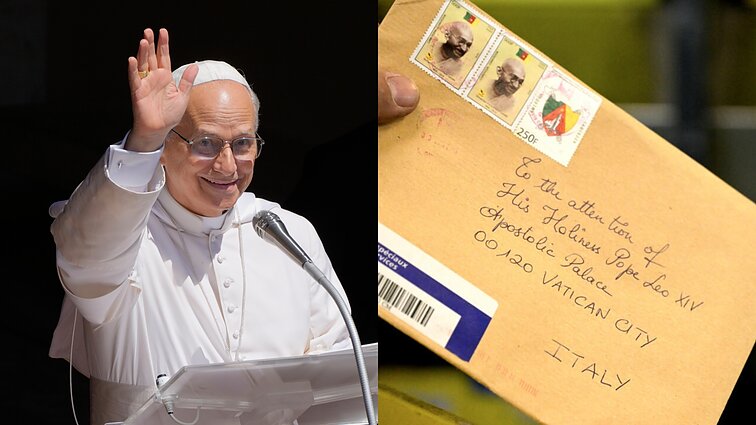 250F
To the attention of
His Holiness Pope Leo XIV
Apostolic Palace
00120 VATICAN CITY
ITALY
spéciaux
Services